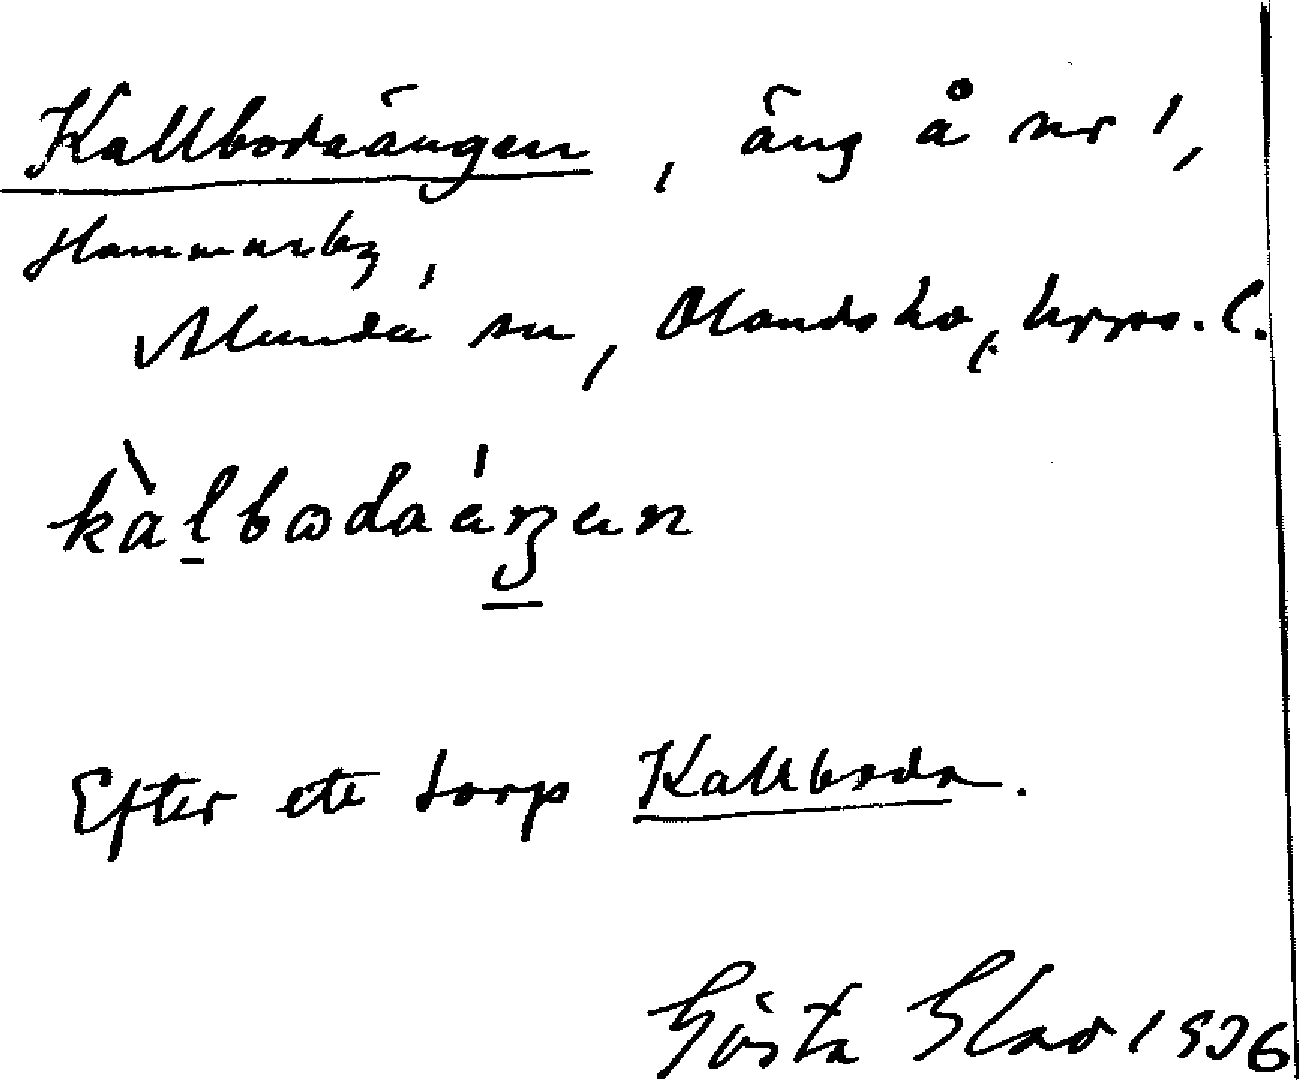 Kallbodaängen, äng å nr 1,
Hammarby,
Alunda sn, Olands hd, Upps. l.
kàlbωdaáŋen
Efter ett torp Kallboda.
Gösta 1936